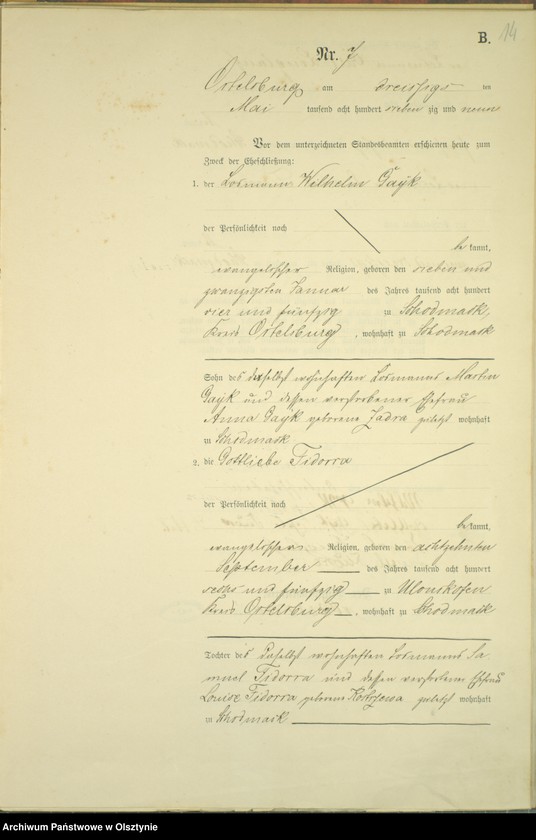 B. 14
Nr. 7
Ortelsburg am dreissigsten
Mai tausend acht hundert sieben zig und neun
Vor dem unterzeichneten Standesbeamten erschienen heute zum
Zweck der Eheschließung:
1. der Losmann Wilhelm Gayk
der Persönlichkeit nach
be kannt,
evangelischer Religion, geboren den sieben und
zwanzigsten Januar des Jahres tausend acht hundert
vier und fünfzig zu Schodmack,
Kreis Ortelsburg, wohnhaft zu Schodmack
Sohn des daselbst wohnhaften Losmanns Martin
Gayk und dessen verstorbener Ehefrau
Anna Gayk geborene Zadra zuletzt wohnhaft
zu Schodmack
2. die Gottliebe Fidorra
der Persönlichkeit nach
be kannt,
evangelischer Religion, geboren den achtzehnten
September des Jahres tausend acht hundert
sechs und fünfzig zu
Kreis Ortelsburg, wohnhaft zu Schodmack
Tochter des daselbst wohnhaften Losmanns Sa-
muel Fidorra und dessen verstorbenen Ehefrau
Louise Fidorra geborene zuletzt wohnhaft
in Schodmack
Archiwum Państwowe w Olsztynie